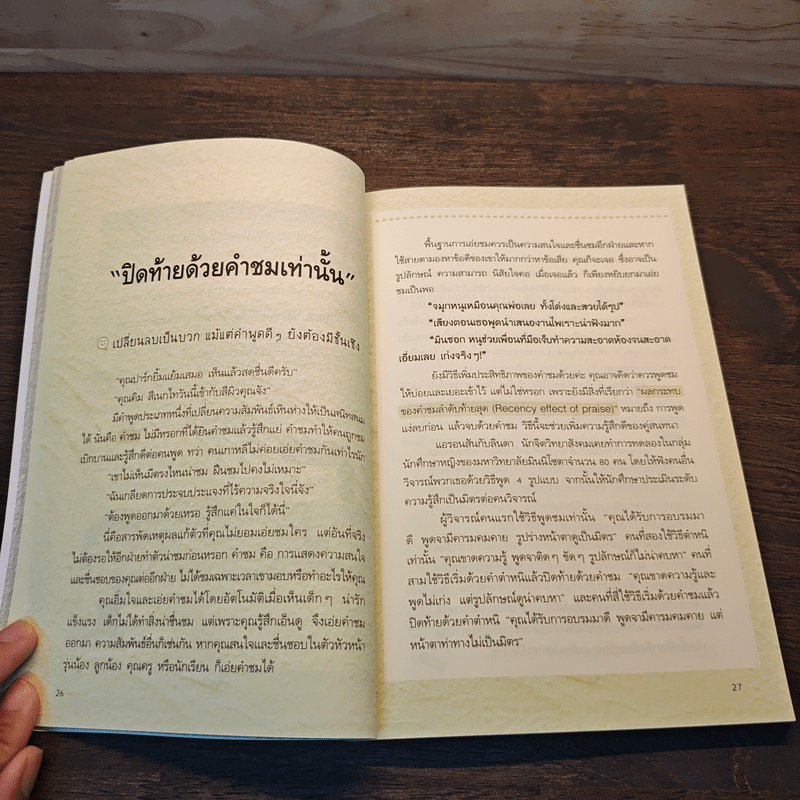 “ปิดท้ายด้วยคำชมเท่านั้น”
เปลี่ยนลบเป็นบวก แม้แต่คำพูดดีๆ ยังต้องมีชั้นเชิง
“คุณปาร์กยิ้มแย้มเสมอ เห็นแล้วสดชื่นดีครับ”
“คุณคิม สีเนกไทวันนี้เข้ากับสีผิวคุณจัง”
มีคำพูดประเภทหนึ่งที่เปลี่ยนความสัมพันธ์เหินห่างให้เป็นสนิทสนม
ได้ นั่นคือ คำชม ไม่มีหรอกที่ได้ยินคำชมแล้วรู้สึกแย่ คำชมทำให้คนถูกชม
เบิกบานและรู้สึกดีต่อคนพูด ทว่า คนเกาหลีไม่ค่อยเอ่ยคำชมกันเท่าไรนัก
“เขาไม่เห็นมีตรงไหนน่าชม ฝืนชมไปคงไม่เหมาะ”
“ฉันเกลียดการประจบประแจงที่ไร้ความจริงใจนี่จัง”
“ต้องพูดออกมาด้วยเหรอ รู้สึกแค่ในใจก็ได้นี่”
นี่คือสารพัดเหตุผลแก้ตัวที่คุณไม่ยอมเอ่ยชมใคร แต่อันที่จริง
ไม่ต้องรอให้อีกฝ่ายทำตัวน่าชมก่อนหรอก คำชม คือ การแสดงความสนใจ
และชื่นชอบของคุณต่ออีกฝ่าย ไม่ได้ชมเฉพาะเวลาเขามอบหรือทำอะไรให้คุณ
คุณยิ้มใจและเอ่ยคำชมได้โดยอัตโนมัติเมื่อเห็นเด็กๆ น่ารัก
แข็งแรง เด็กไม่ได้ทำสิ่งน่าชื่นชม แต่เพราะคุณรู้สึกเอ็นดู จึงเอ่ยคำชม
ออกมา ความสัมพันธ์อื่นก็เช่นกัน หากคุณสนใจและชื่นชอบในตัวหัวหน้า
รุ่นน้อง ลูกน้อง คุณครู หรือนักเรียน ก็เอ่ยคำชมได้
26
พื้นฐานการเอ่ยชมควรเป็นความสนใจและชื่นชมอีกฝ่ายและหาก
ใช้สายตามองหาข้อดีของเขาให้มากกว่าหาข้อเสีย คุณก็จะเจอ ซึ่งอาจเป็น
รูปลักษณ์ ความสามารถ นิสัยใจคอ เมื่อเจอแล้ว ก็เพียงหยิบยกมาเอ่ย
ชมเป็นพอ
“จมูกหนูเหมือนคุณพ่อเลย ทั้งโด่งและสวยได้รูป”
“เสียงตอนเธอพูดนำเสนองานไพเราะน่าฟังมาก”
“มินซอก หนูช่วยเพื่อนที่มือเจ็บทำความสะอาดห้องจนสะอาด
เอี่ยมเลย เก่งจริงๆ!”
ยังมีวิธีเพิ่มประสิทธิภาพของคำชมด้วยค่ะ คุณอาจคิดว่าควรพูดชม
ให้บ่อยและเยอะเข้าไว้ แต่ไม่ใช่หรอก เพราะยังมีสิ่งที่เรียกว่า “ผลกระทบ
ของคำชมลำดับท้ายสุด (Recency effect of praise)” หมายถึง การพูด
แง่ลบก่อน แล้วจบด้วยคำชม วิธีนี้จะช่วยเพิ่มความรู้สึกดีของคู่สนทนา
แอรอนสันกับลินดา นักจิตวิทยาสังคมเคยทำการทดลองในกลุ่ม
นักศึกษาหญิงของมหาวิทยาลัยมินนิโซตาจำนวน 80 คน โดยให้ฟังคนอื่น
วิจารณ์พวกเธอด้วยวิธีพูด 4 รูปแบบ จากนั้นให้นักศึกษาประเมินระดับ
ความรู้สึกเป็นมิตรต่อคนวิจารณ์
ผู้วิจารณ์คนแรกใช้วิธีพูดชมเท่านั้น “คุณได้รับการอบรมมา
ดี พูดจามีคารมคมคาย รูปร่างหน้าตาดูเป็นมิตร” คนที่สองใช้วิธีตำหนิ
เท่านั้น “คุณขาดความรู้ พูดจาติดๆ ขัดๆ รูปลักษณ์ก็ไม่น่าคบหา” คนที่
สามใช้วิธีเริ่มด้วยคำตำหนิแล้วปิดท้ายด้วยคำชม “คุณขาดความรู้และ
พูดไม่เก่ง แต่รูปลักษณ์ดูน่าคบหา” และคนที่สี่ใช้วิธีเริ่มด้วยคำชมแล้ว
ปิดท้ายด้วยคำตำหนิ “คุณได้รับการอบรมมาดี พูดจามีคารมคมคาย แต่
หน้าตาท่าทางไม่เป็นมิตร”
27